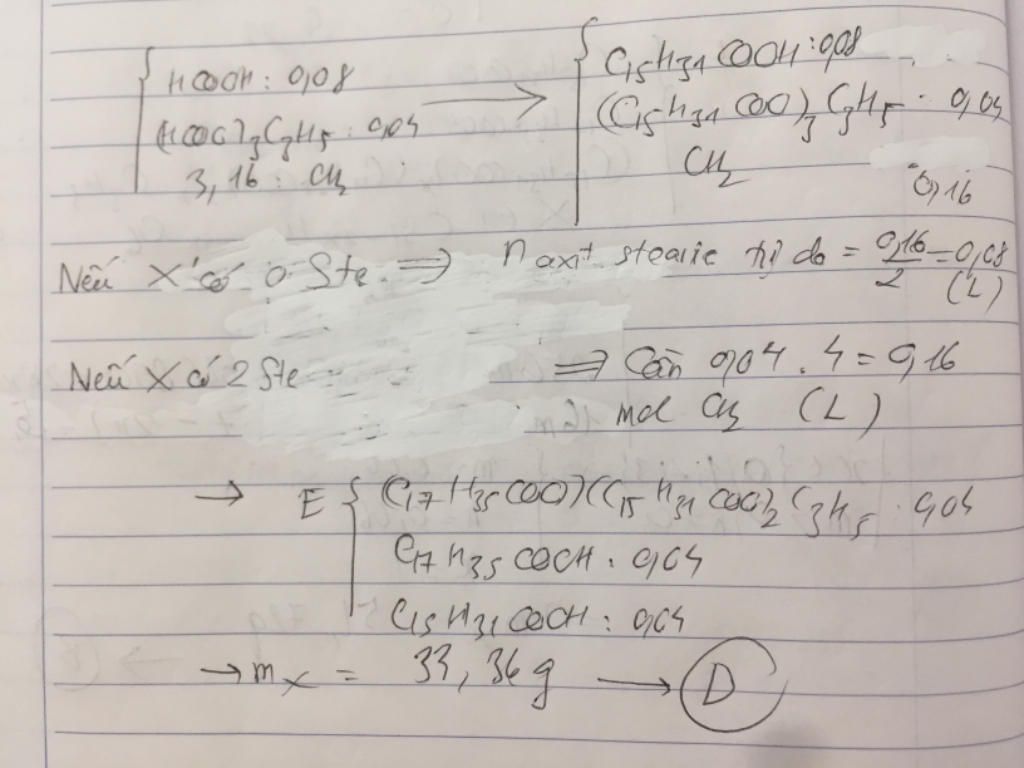 HCOOH : 0,08
(HCOO)3C3H5 : 0,04
3,16 : CH2
→
C15H31COOH : 0,08
(C15H31COO)3C3H5 : 0,04
CH2 : 0,16
Nếu X có 0 Ste => n axit stearic tự do = 0,16/2 = 0,08 (L)
Nếu X có 2 Ste => Cần 0,04 . 4 = 0,16
mol CH2 (L)
→ E { (C17H35COO)(C15H31COO)2C3H5 : 0,04
C17H35COOH : 0,04
C15H31COOH : 0,04
→ mX = 33,36g → D